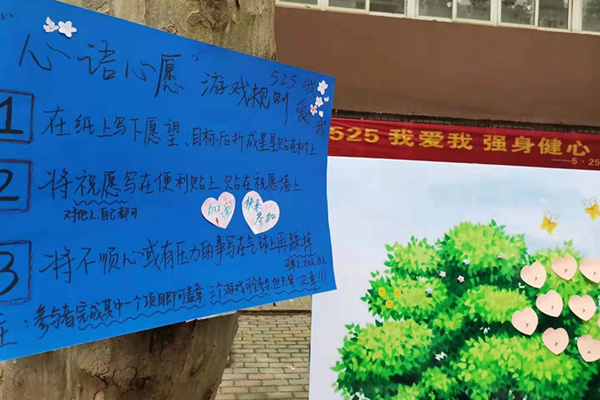 "心语心愿"游戏规则
525我
爱我
1 在纸上写下愿望、目标后折成星星贴在树上
2 将祝愿写在便利贴上 贴在祝愿墙上
对他人、自己都可
加油
快来参加
3 将不顺心或有压力的事写在气球上再踩掉
注:参与者完成其中一个项目即可盖章 三个游戏可全参 但只有一次章!!!
525 我爱我 强身健心
——5·25